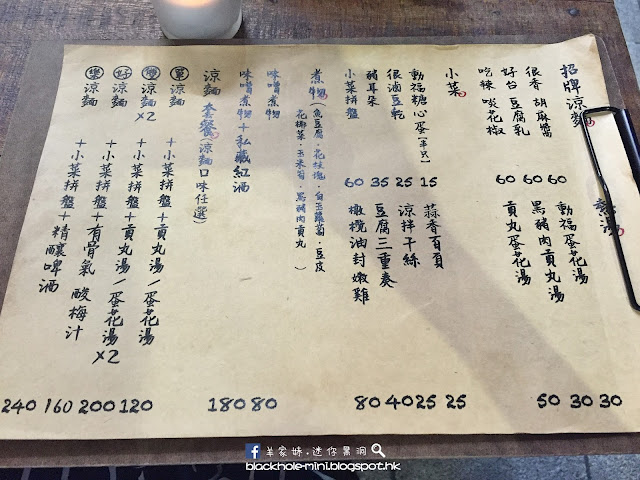 招牌涼麵 熱湯
很香 胡麻醬 60 動福蛋花湯 30
好台 豆腐乳 60 黑豬肉貢丸湯 30
吃辣 啖花椒 60 貢丸蛋花湯 50
小菜
動福糖心蛋(半只) 15 蒜香百頁 25
很滷豆乾 25 涼拌干絲 25
豬耳朵 35 豆腐三重奏 40
小菜拼盤 60 橄欖油封嫩雞 80
煮物(魚豆腐.花枝塊.白玉蘿蔔.豆皮
花椰菜.玉米筍.黑豬肉貢丸)
味噌煮物 80
味噌煮物+私藏紅酒 180
涼麵套餐(涼麵口味任選)
單 涼麵 +小菜拼盤+貢丸湯/蛋花湯 120
雙 涼麵x2 +小菜拼盤+貢丸湯/蛋花湯x2 200
好 涼麵 +小菜拼盤+有骨氣酸梅汁 160
樂 涼麵 +小菜拼盤+精釀啤酒 240
羊家姊.迷你黑洞
blackhole-mini.blogspot.hk